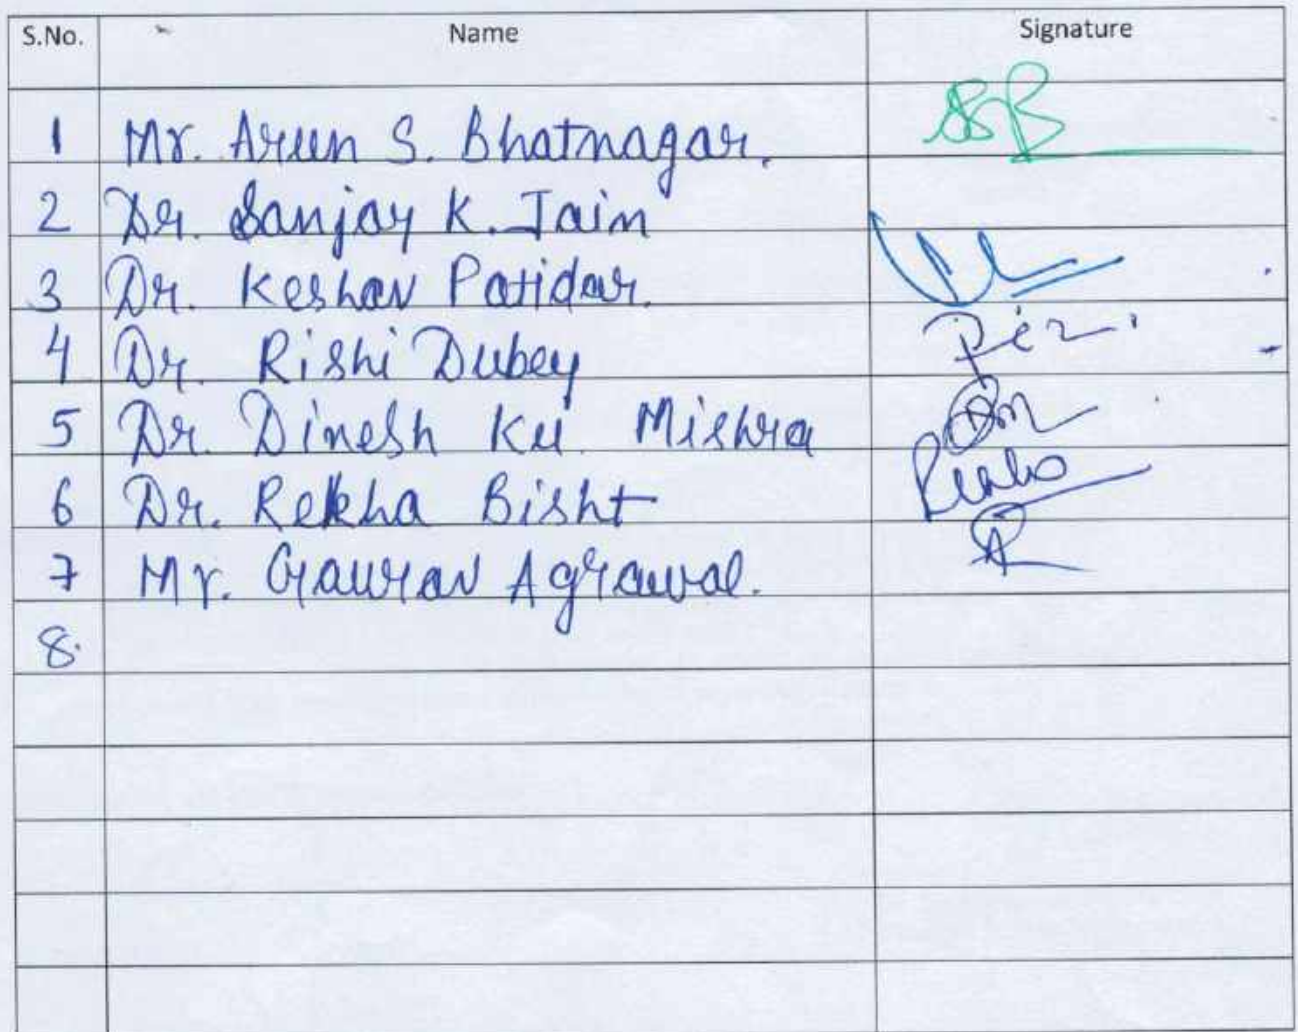 S.No. Name Signature
1 Mr. Arun S. Bhatnagar.
2 Dr. Sanjay K. Jain
3 Dr. Keshav Patidar.
4 Dr. Rishi Dubey
5 Dr. Dinesh Ku. Mishra
6 Dr. Rekha Bisht
7 Mr. Gaurav Agrawal.
8.